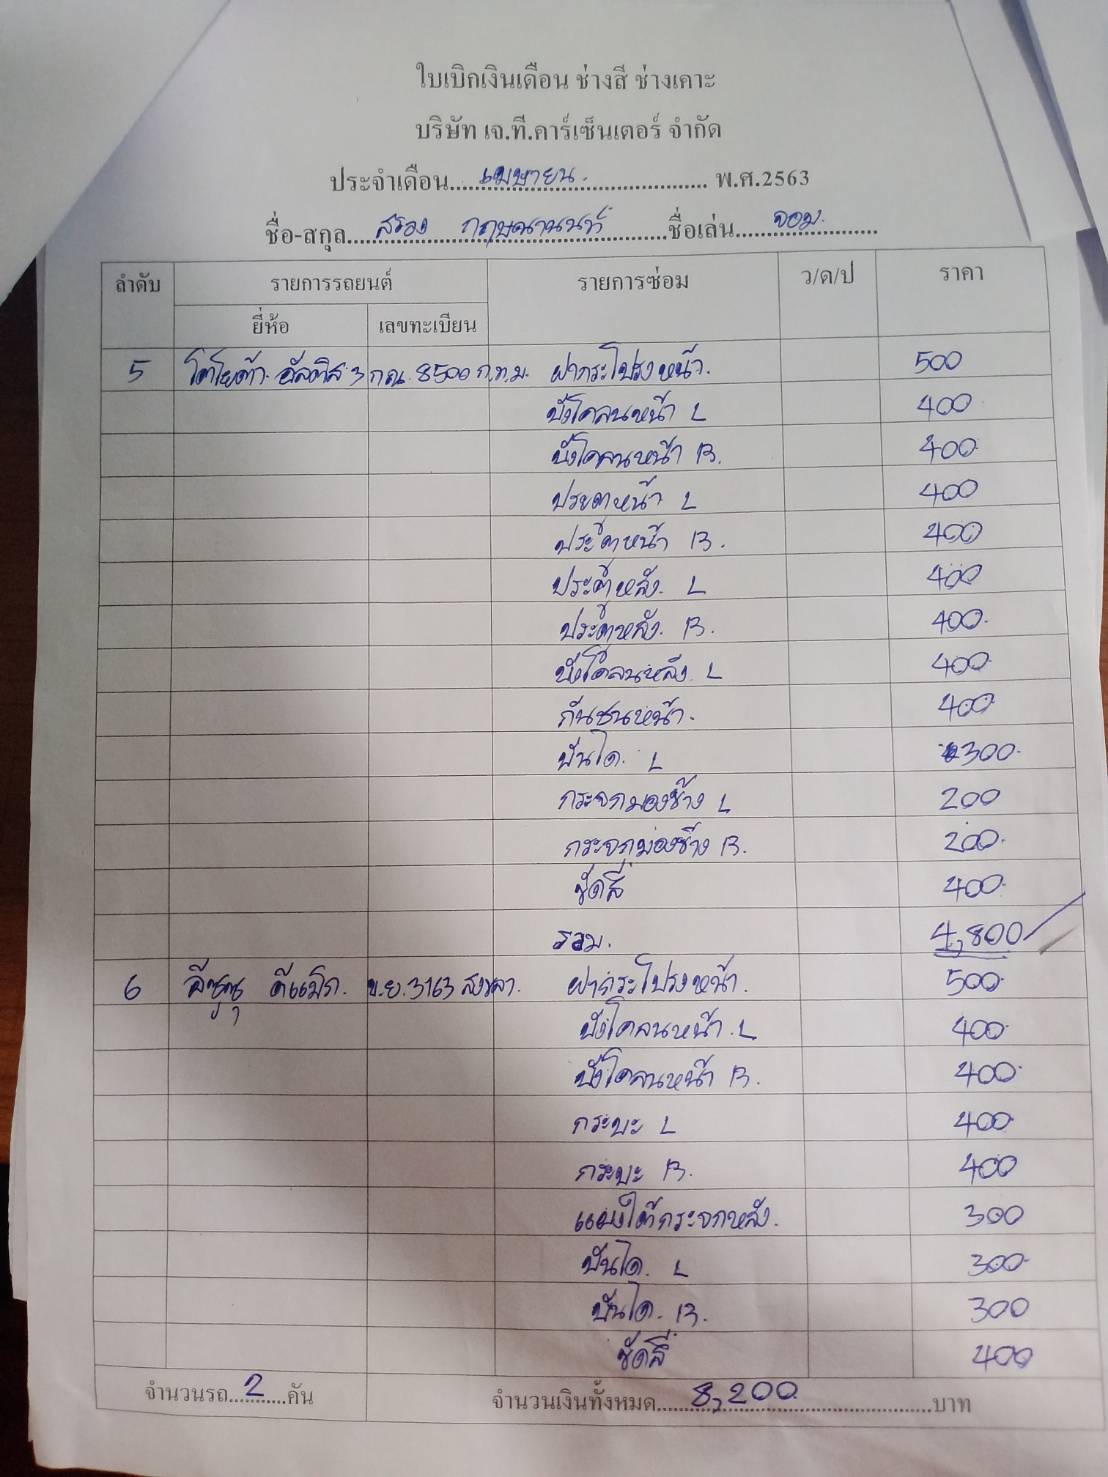 ใบเบิกเงินเดือน ช่างสี ช่างเคาะ
บริษัท เจ.ที.คาร์เซ็นเตอร์ จำกัด
ประจำเดือน....เมษายน.................... พ.ศ.2563
ชื่อ-สกุล....สรอง กฤษณานนท์..........ชื่อเล่น......จอม.........
ลำดับ รายการรถยนต์ รายการซ่อม ว/ด/ป ราคา
ยี่ห้อ เลขทะเบียน
5 โตโยต้า อัลติส 3 กณ. 8500 ก.ท.ม. ฝากระโปรงหน้า. 500
บังโคลนหน้า L 400
บังโคลนหน้า R. 400
ประตูหน้า L 400
ประตูหน้า R. 400
ประตูหลัง. L 400
ประตูหลัง. R. 400
บังโคลนหลัง L 400
กันชนหน้า. 400
บันได. L 300
กระจกมองข้าง L 200
กระจกมองข้าง R. 200
ขัดสี 400
รวม. 4,800
6 อีซูซุ ดีแม็ก. บ.ย. 3163 สงขลา. ฝากระโปรงหน้า. 500
บังโคลนหน้า. L 400
บังโคลนหน้า R. 400
กระบะ L 400
กระบะ R. 400
แผงใต้กระจกหลัง. 300
บันได. L 300
บันได. R. 300
ขัดสี 400
จำนวนรถ...2...คัน จำนวนเงินทั้งหมด......8,200......................บาท